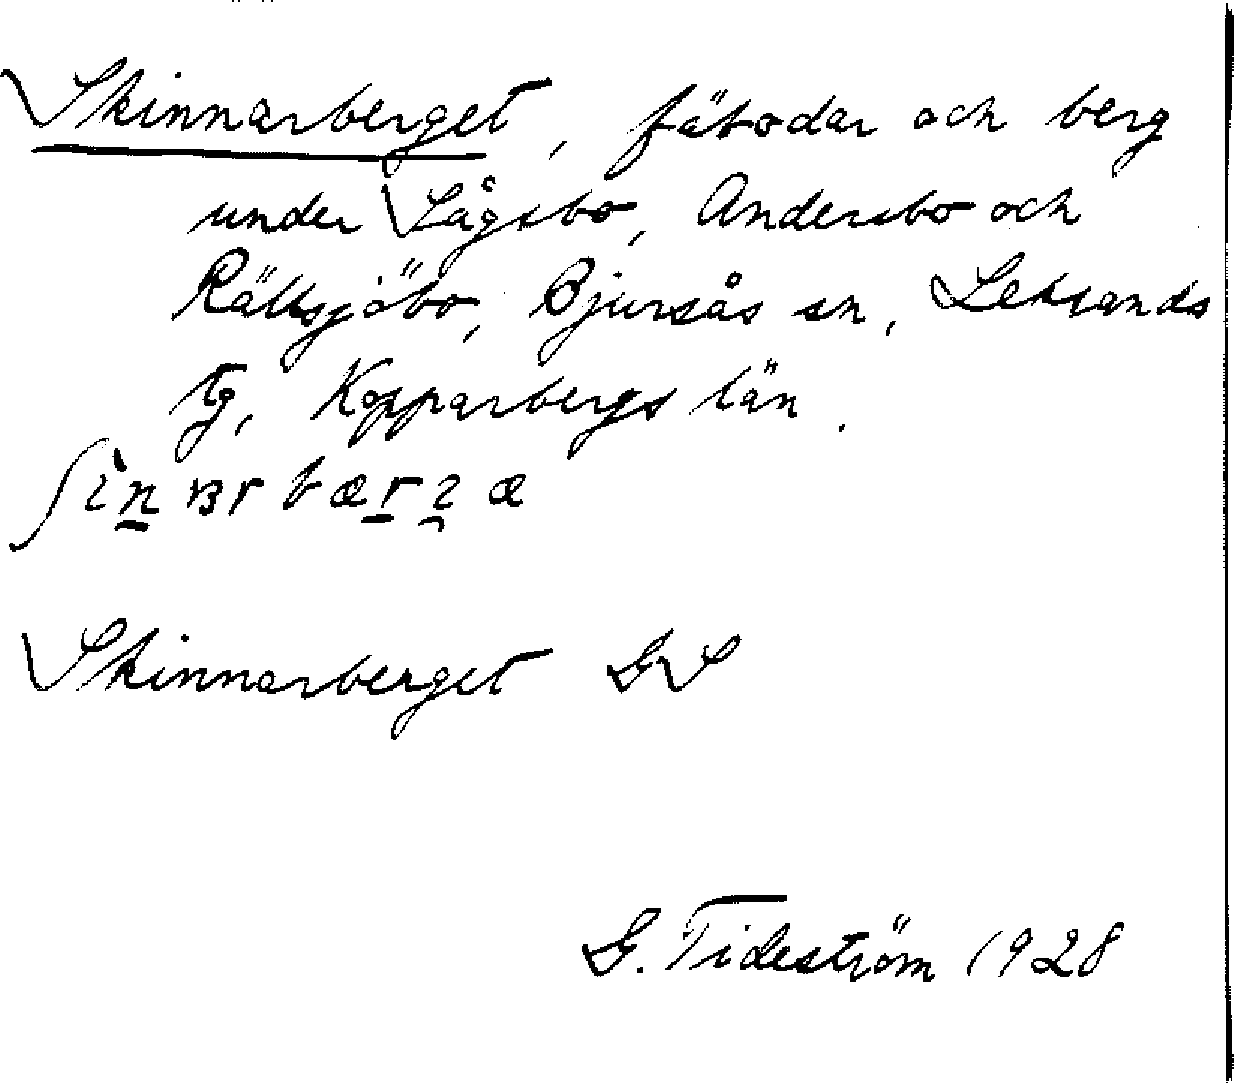 Skinnarberget, fäbodar och berg
under Lågsbo, Andersbo och
Rällsjöbo, Bjursås sn, Leksands
tg, Kopparbergs län.
Skinnarberget GS
G. Tideström 1928